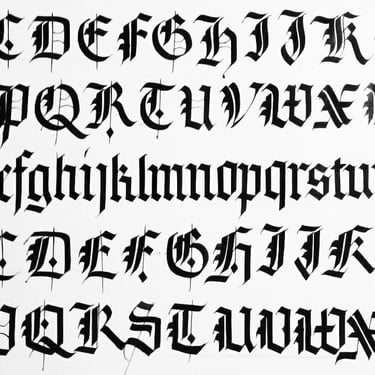 C D E F G H I J K
P Q R T U V W X
c f g h i j k l m n o p q r s t u
C D E F G H I J K
Q R S T U V W X